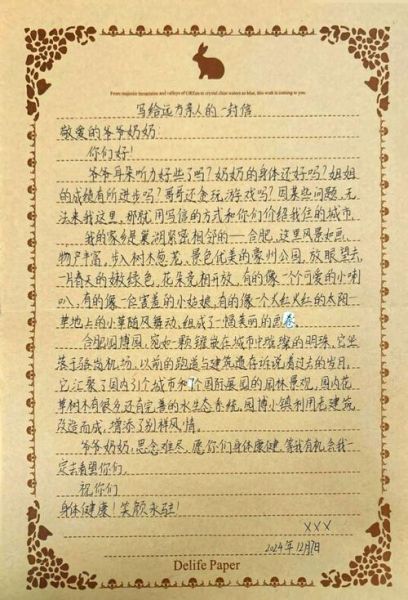 From majestic mountains and valleys of GREen to crystal clear waters so blue, this wish is coming to you.
写给远方亲人的一封信
敬爱的爷爷奶奶:
你们好!
爷爷耳朵听力好些了吗?奶奶的身体还好吗?姐姐
的成绩有所进步吗?哥哥还贪玩游戏吗?因某些问题,无
法来我这里,那就用写信的方式和你们介绍我住的城市。
我的家乡是巢湖紧密相邻的——合肥,这里风景如画,
物产丰富,步入树木葱茏,景色优美的豪州公园,放眼望去,
一片春天的嫩绿色,花朵竞相开放,有的像一个可爱的小喇
叭,有的像一位害羞的小姑娘,有的像个大红大红的太阳…
草地上的小草随风舞动,组成了一幅美丽的画卷。
合肥园博园,宛如一颗镶嵌在城市中璀璨的明珠,它坐
落于骆岗机场,以前的跑道与建筑遗存诉说着过去的岁月,
它汇聚了国内31个城市和7个国际展园的园林景观,园内花
草树木有很多还有完善的水生态系统,园博小镇利用老建筑
改造而成,增添了别样风情。
爷爷奶奶,思念难尽,愿你们身体康健,等我有机会我一
定去看望你们。
祝你们
身体健康!笑颜永驻!
XXX
2024年12月7日
Delife Paper